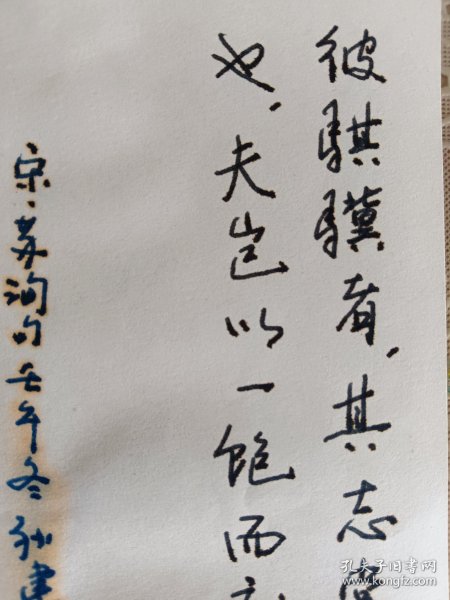 彼騏驥者，其志
也，夫岂以一饱而
宋·苏洵句 壬午冬 孙建
孔夫子旧书网
www.kongfz.com